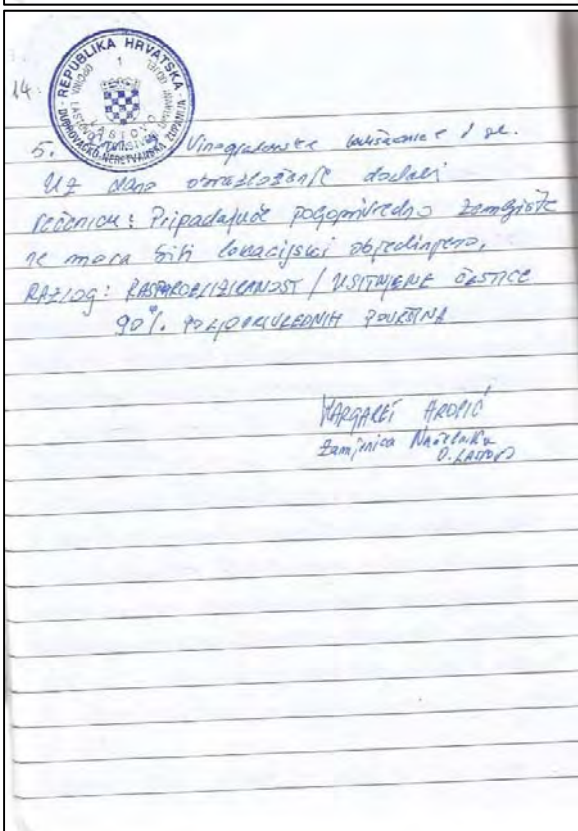 REPUBLIKA HRVATSKA
1
DUBROVAČKO-NERETVANSKA ŽUPANIJA
OPĆINA LASTOVO
LASTOVO
14.
5. Vinogradarske i sl.
Uz dano obrazloženje dodati
rečenicu: Pripadajuće poljoprivredno zemljište
ne mora biti lokacijski objedinjeno,
RAZLOG: RASPARCELIZIRANOST / USITNJENE ČESTICE
90% POLJOPRIVREDNIH POVRŠINA
MARGARET
Zamjenica Načelnika
O. LASTOVO